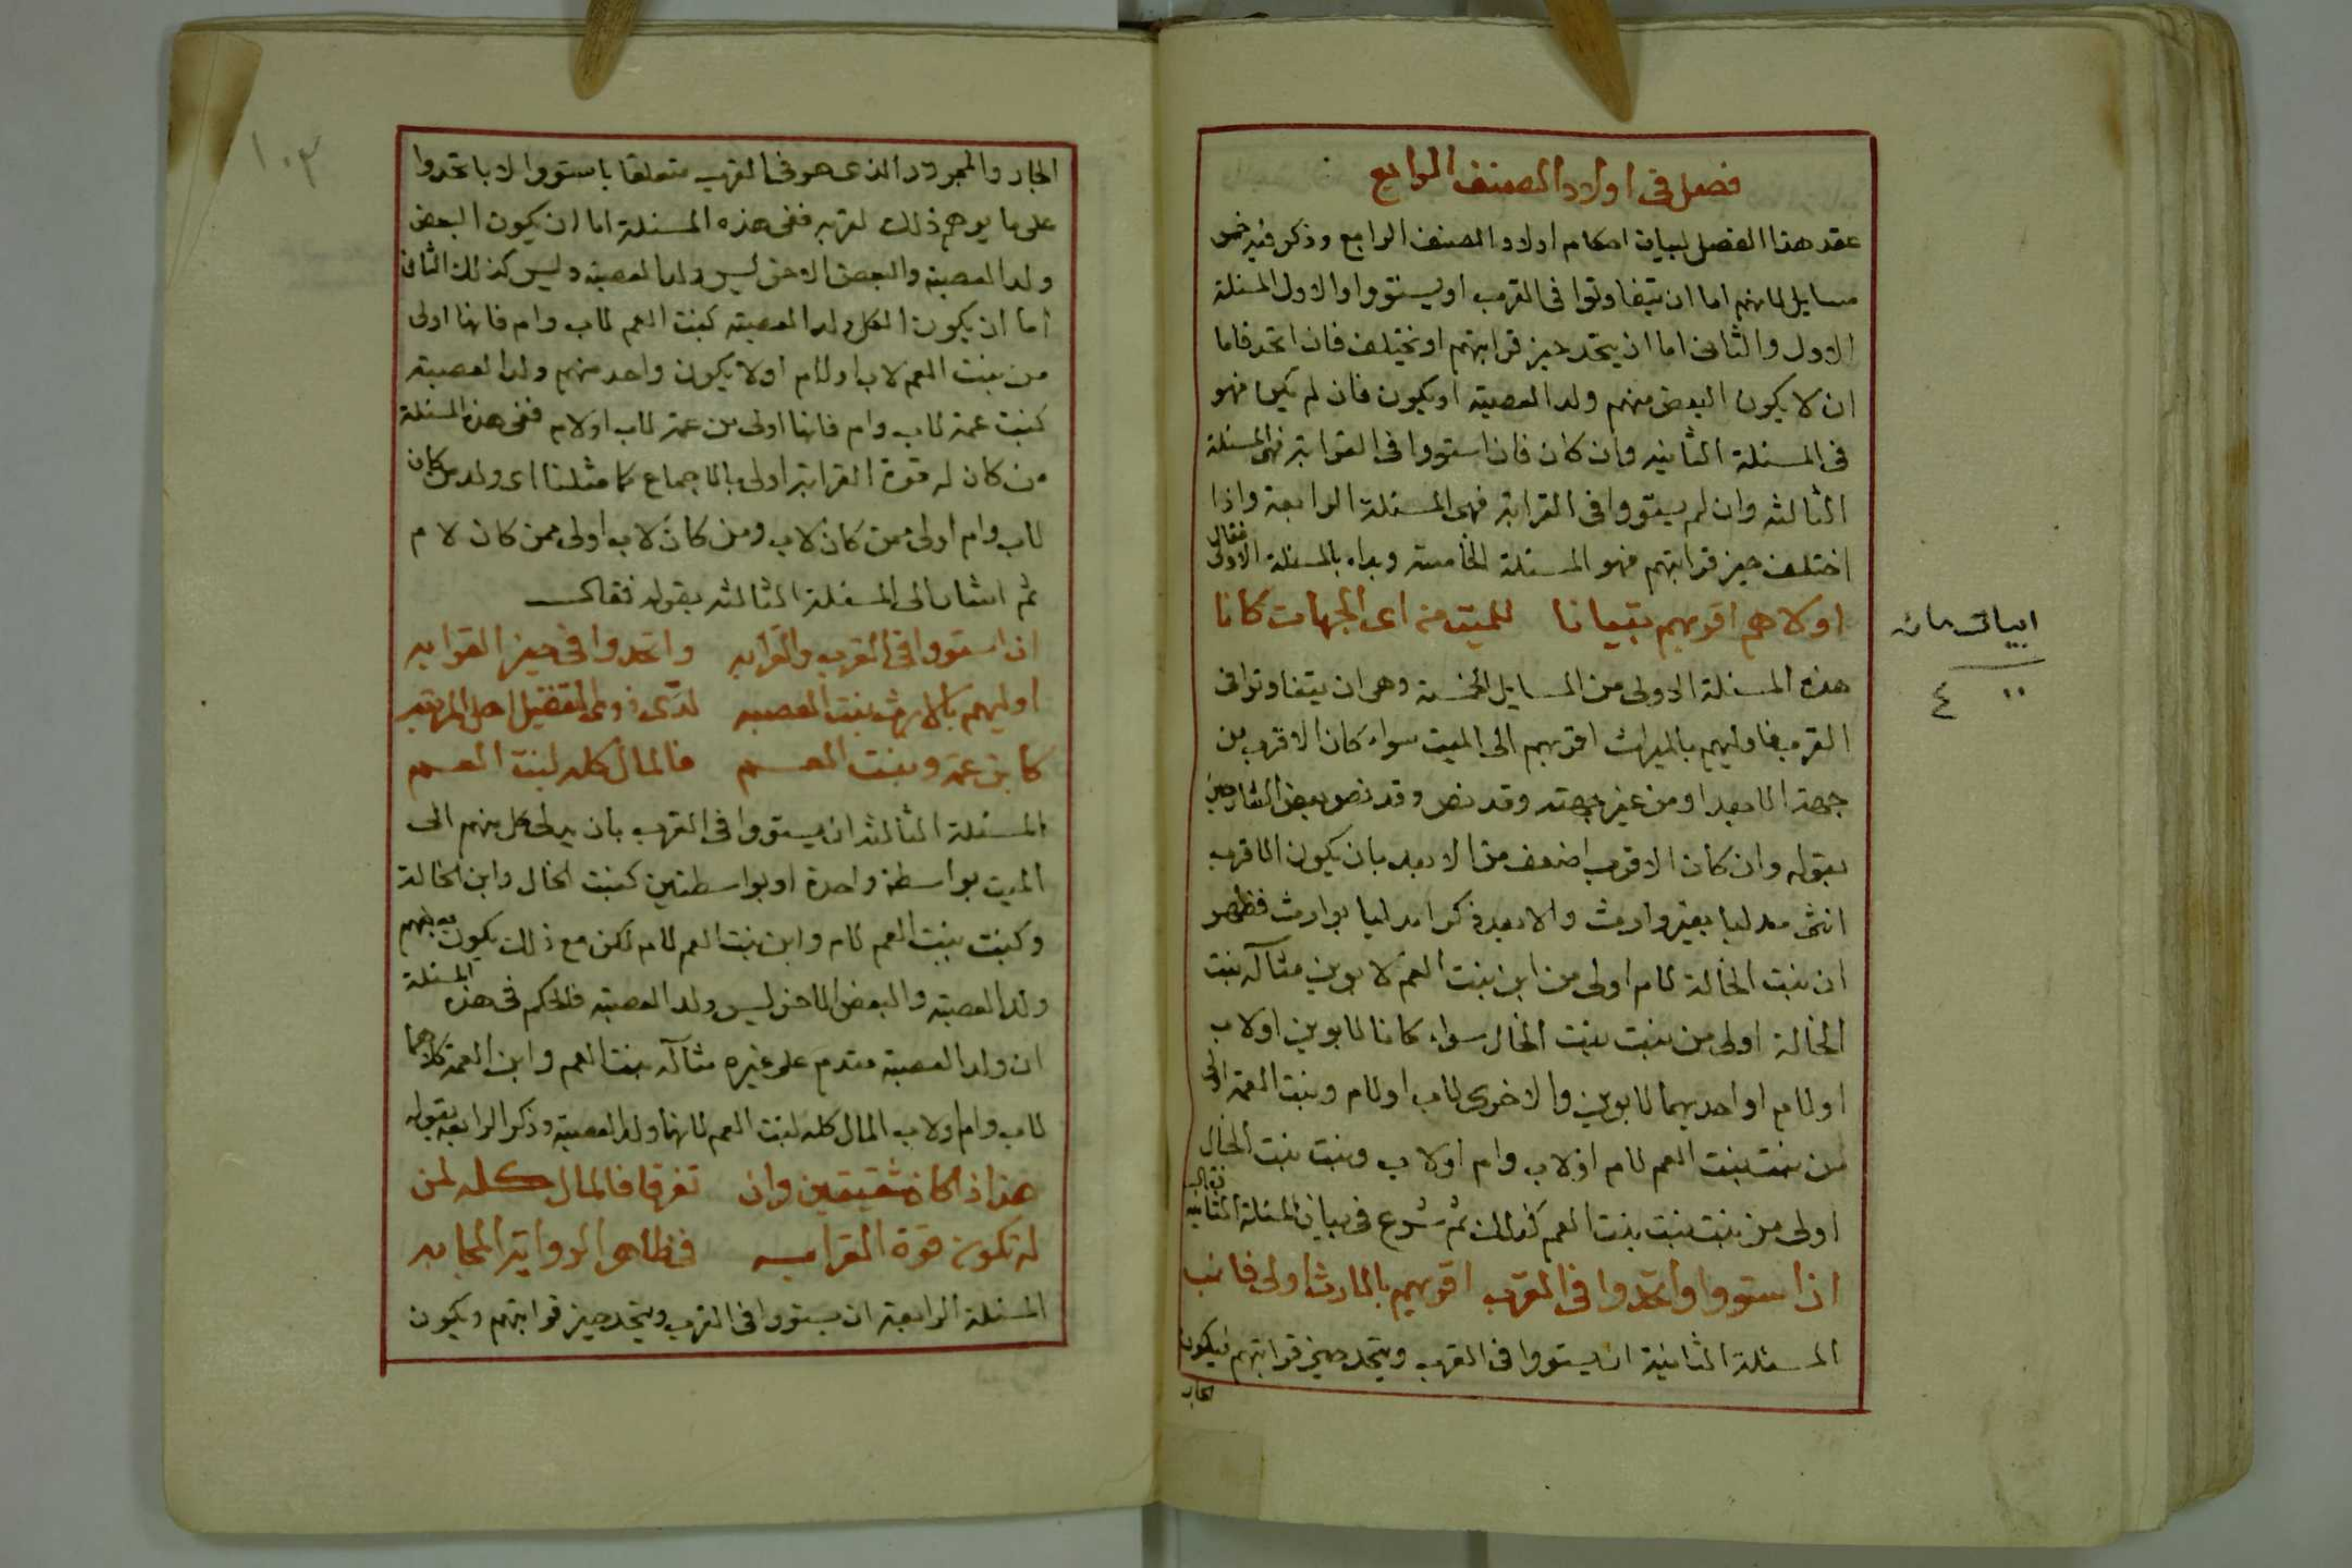 فصل فى اولاد الصنف الرابع
عقد هذا الفصل لبيان احكام اولاد الصنف الرابع وذكر فيه خمس
مسايل لانهم اما ان يتفاوتوا فى القرب او يستووا والاول المسئلة
الاول والثانى اما ان يتحد حيز قرابتهم او يختلف فان اتحد فاما
ان لا يكون البعض منهم ولد العصبة او يكون فان لم يكن فهو
فى المسئلة الثانيه وان كان فان استووا فى القرابة فهى المسئلة
الثالثه وان لم يستووا فى القرابة فهى المسئلة الرابعة واذا
اختلف حيز قرابتهم فهو المسئلة الخامسة وبداء بالمسئلة الاولى فقال
اولاهم اقربهم بقيانا للميت من اى الجهات كانا
ابيات
٤
هذه المسئلة الاولى من المسايل الخمسة وهى ان يتفاوتوا فى
القرب فاوليهم بالميراث اقربهم الى الميت سواء كان الاقرب من
جهة الابعد او من غير جهته وقد نص وقد نص بعض الشارحين
بقوله وان كان الاقرب اضعف من الابعد بان يكون الاقرب
انثى مدليا بغير وارث والابعد ذكرا مدليا بوارث فظهر
ان بنت الخالة لام اولى من ابن بنت العم لابوين مثاله بنت
الخالة اولى من بنت بنت الخال سواء كانا لابوين او لاب
او لام او احديهما لابوين والاخرى لاب او لام وبنت العمة اولى
من بنت بنت العم لام او لاب وام او لاب وبنت بنت الخال
اولى من بنت بنت بنت العم كذلك ثم شرع فى بيان المسئلة الثانيه فقال
اذا ستووا واتحدوا فى القرب اقربهم بالارث اولى فانب
المسئلة الثانية ان يستووا فى القرب ويتحد حيز قرابتهم فيكون
الجار
١٠٣
الجار والمجرور الذى هو فى القرب متعلقا باستووا لا باتحدوا
على ما يوهم ذلك لقربه ففى هذه المسئلة اما ان يكون البعض
ولد العصبة والبعض الاخر ليس ولد العصبة وليس كذلك الثانى
اما ان يكون الكل ولد العصبة كبنت العم لاب وام فانها اولى
من بنت العم لاب او لام او لا يكون واحد منهم ولد العصبة
كبنت عمة لاب وام فانها اولى من عمة لاب او لام ففى هذه المسئلة
من كان له قوة القرابة اولى بالاجماع كما مثلنا اى ولد من كان
لاب وام اولى ممن كان لاب ومن كان لاب اولى ممن كان لام
ثم اشار الى المسئلة الثالثه بقوله فقال
ان استووا فى القرب والقرابه واتحدوا فى حيز القرابه
اوليهم بالارث بنت العصبه لدى ذوى التفضيل اهل المرتبه
كابن عمة وبنت العم فالمال كله لبنت العم
المسئلة الثالثه ان يستووا فى القرب بان يدلى كل منهم الى
الميت بواسطة واحدة او بواسطتين كبنت الخال وابن الخالة
وكبنت بنت العم لام وابن بنت العم لام لكن مع ذلك يكون بعضهم
ولد العصبة والبعض الاخر ليس ولد العصبة فالحكم فى هذه المسئلة
ان ولد العصبة مقدم على غيره مثاله بنت العم وابن العمة كلاهما
لاب وام او لاب المال كله لبنت العم لانها ولد العصبة وذكر الرابعه بقوله
هذا اذا كانا شقيقين وان تفرقا فالمال كله لمن
له تكون قوة القرابه فظاهر الرواية المجابه
المسئلة الرابعة ان يستووا فى القرب ويتحد حيز قرابتهم ويكون